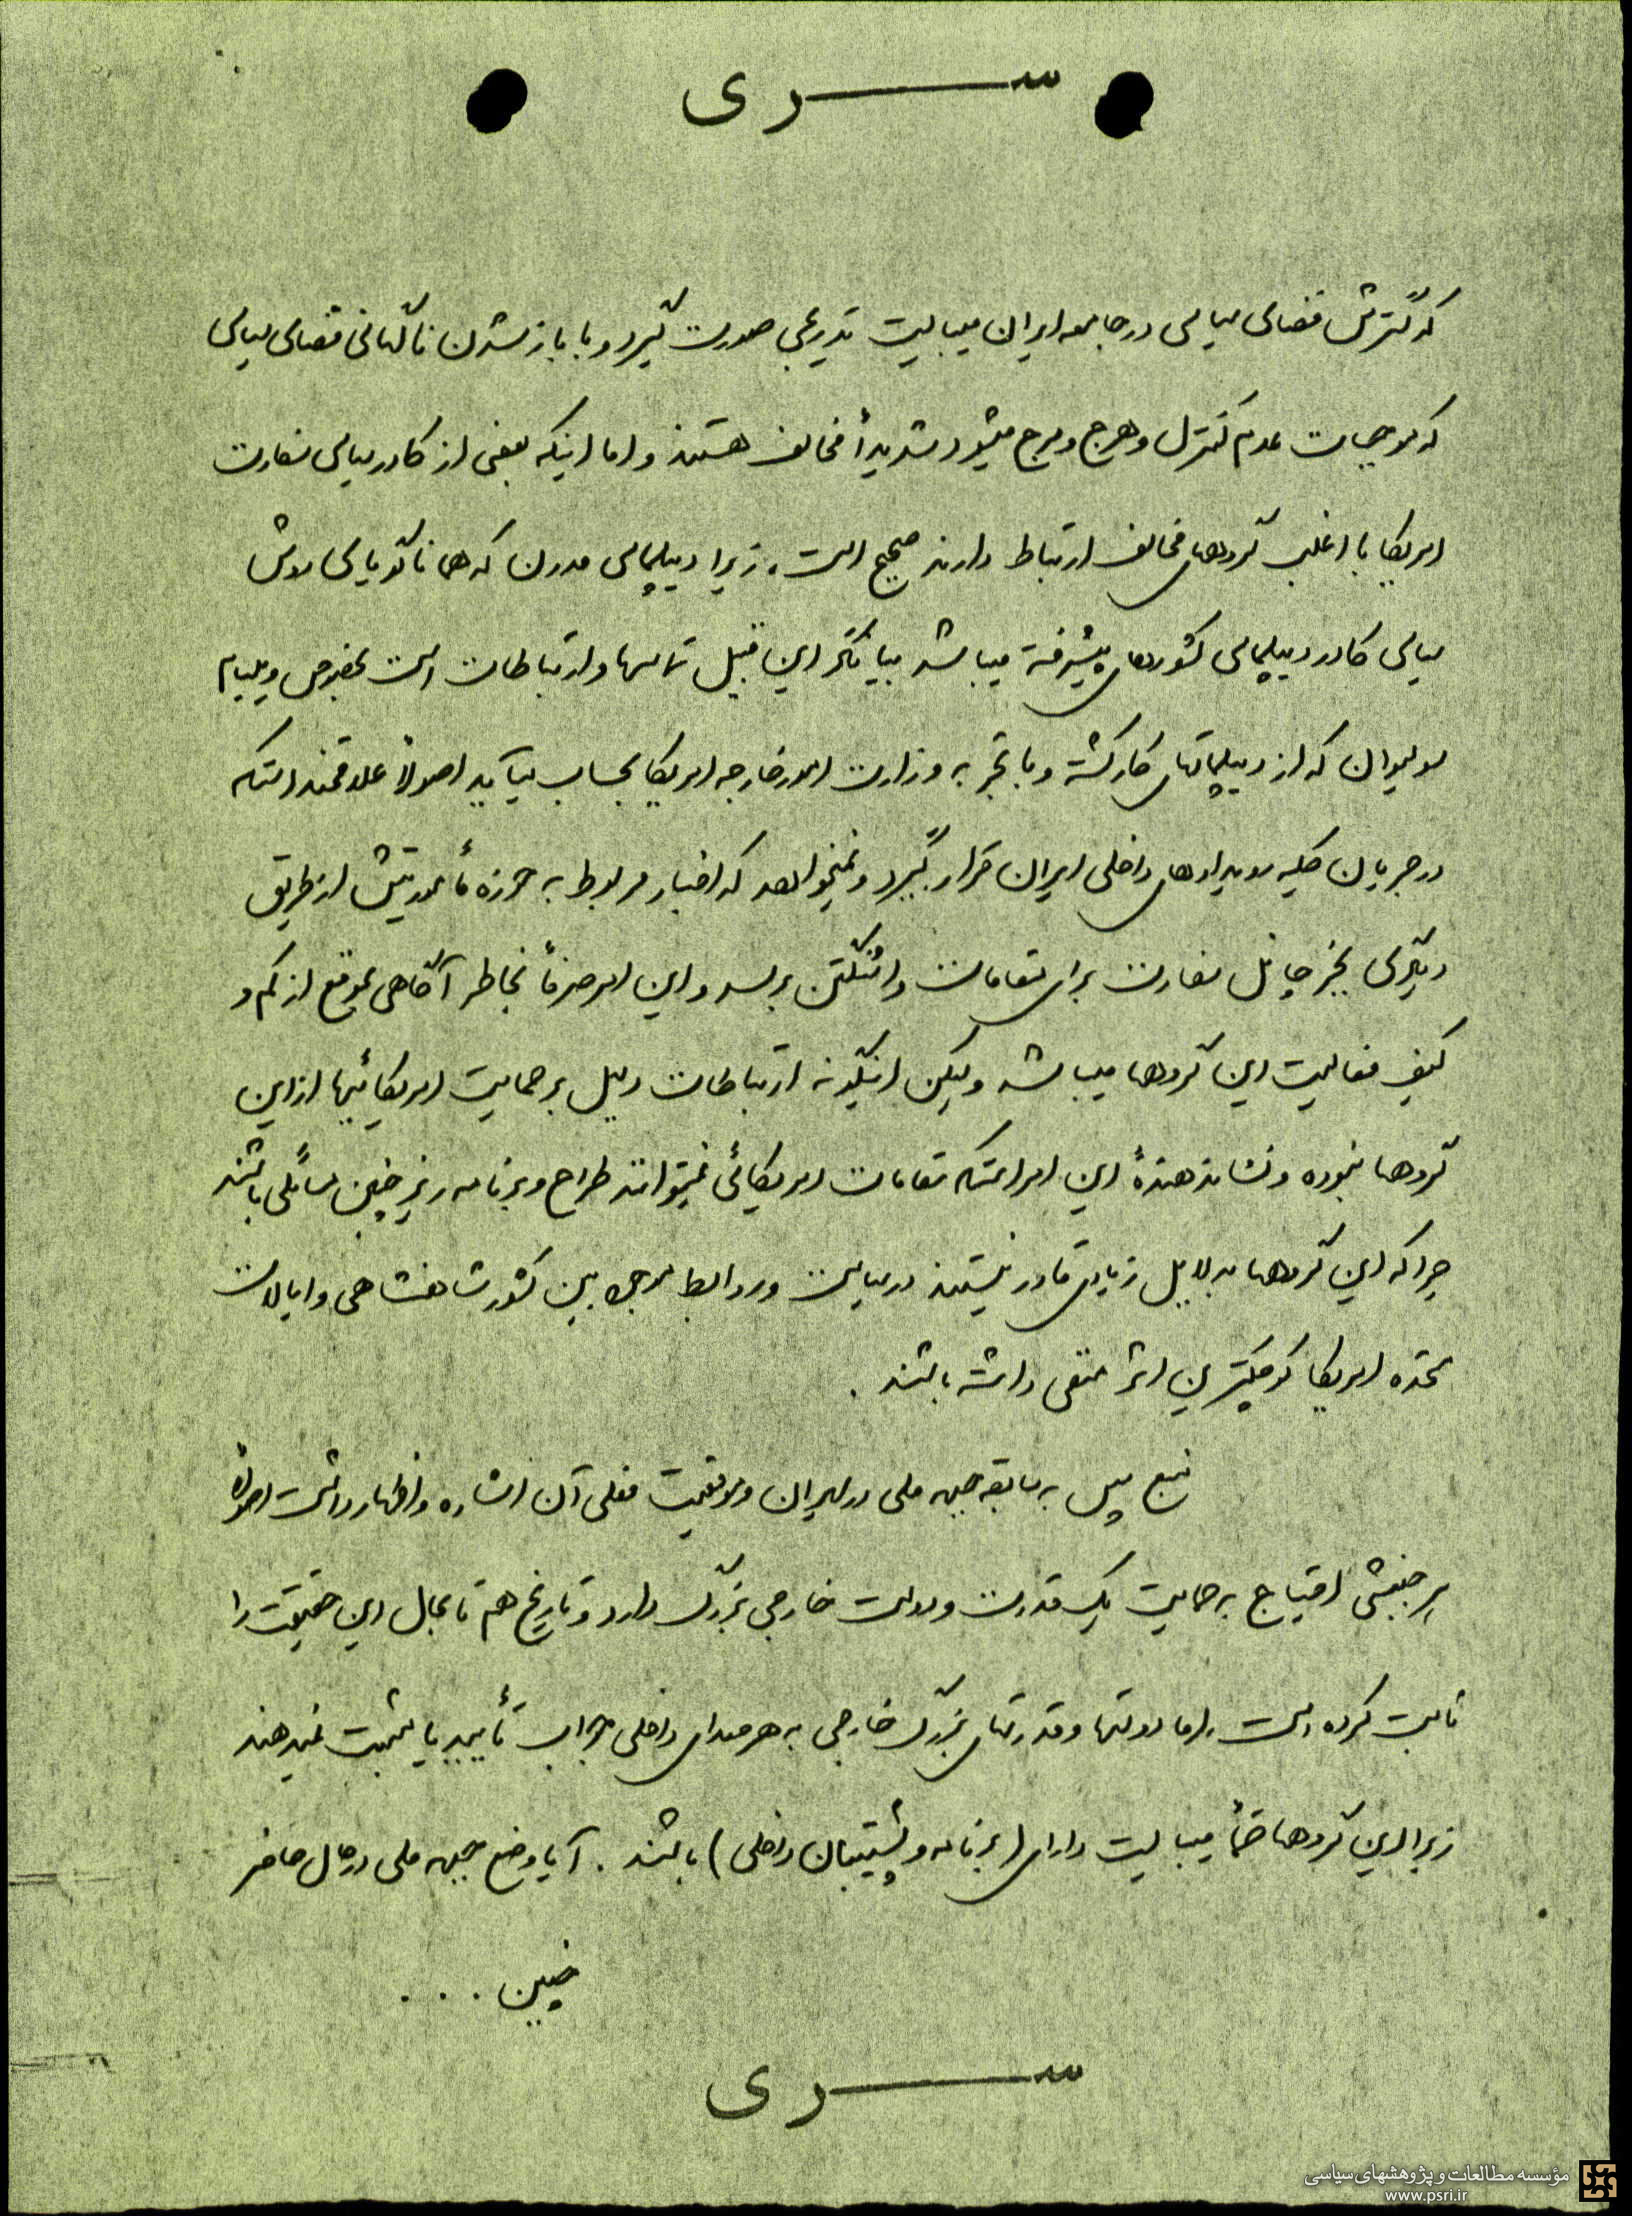 سری
که گسترش فضای سیاسی در جامعه ایران میبایست تدریجی صورت گیرد و با باز شدن ناگهانی فضای سیاسی
که موجبات عدم کنترل و هرج و مرج میشود شدیداً مخالف هستند و اما اینکه بعضی از کادر سیاسی سفارت
امریکا با اغلب گروههای مخالف ارتباط دارند صحیح است، زیرا دیپلماسی مدرن که همانا گویای روش
سیاسی کادر دیپلماسی کشورهای پیشرفته میباشد بیانگر این قبیل تماسها و ارتباطات است بخصوص ویلیام
سولیوان که از دیپلماتهای کارکشته و با تجربه وزارت امور خارجه امریکا بحساب میآید اصولاً علاقمند استکه
در جریان کلیه رویدادهای داخلی ایران قرار گیرد و نمیخواهد که اخبار مربوط به حوزه مأموریتش از طریق
دیگری بجز چانل سفارت برای مقامات واشنگتن برسد و این امر صرفاً بخاطر آگاهی بموقع از کم و
کیف فعالیت این گروهها میباشد ولیکن اینگونه ارتباطات دلیل بر حمایت امریکائیها از این
گروهها نبوده و نشاندهندهٔ این امر استکه مقامات امریکائی نمیتوانند طراح و برنامه ریز چنین مسائلی باشند
چرا که این گروهها بدلایل زیادی قادر نیستند در سیاست و روابط موجود بین کشور شاهنشاهی و ایالات
متحده امریکا کوچکترین اثر منفی داشته باشند .
منبع سپس به سابقه جبهه ملی در ایران و موقعیت فعلی آن اشاره و اظهار داشت اصولاً
هر جنبشی احتیاج به حمایت یک قدرت و دولت خارجی بزرگ دارد و تاریخ هم تا بحال این حقیقت را
ثابت کرده است . اما دولتها و قدرتهای بزرگ خارجی به هر صدای داخلی جواب تأیید یا مثبت نمیدهند
زیرا این گروهها حتماً میبایست دارای (برنامه و پشتیبان داخلی) باشند . آیا وضع جبهه ملی در حال حاضر
چنین . . .
سری
مؤسسه مطالعات و پژوهشهای سیاسی
www.psri.ir